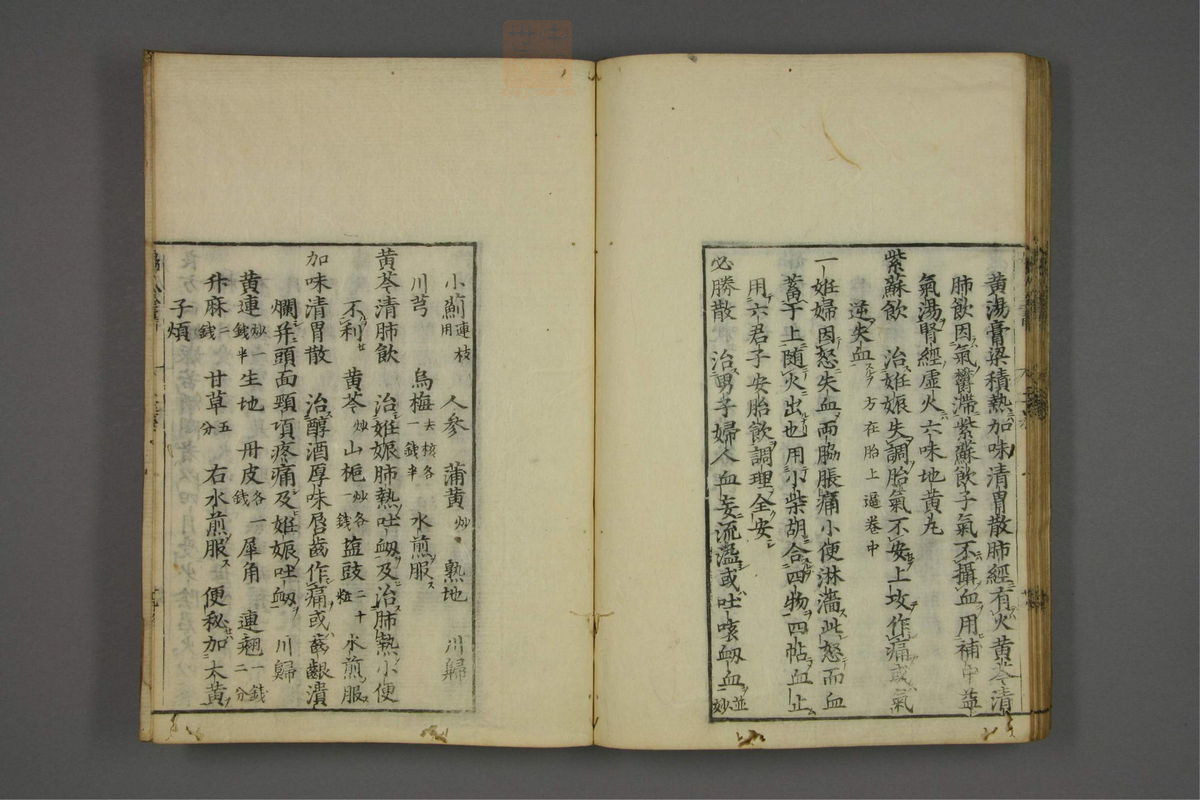 黄湯膏粱積熱加味清胃散肺經有火黄芩清
肺飲因氣欝滯紫蘇飲子氣不攝血用補中益
氣湯腎經虚火六味地黄丸
紫蘇飲 治姙娠失調胎氣不安上攻作痛或氣
逆失血 方在胎上逼卷中
一姙婦因怒失血両脇脹痛小便淋濇此怒而血
蓄于上随火出也用小柴胡合四物四帖血止
用六君子安胎飲調理全安
必勝散 治男子婦人血妄流溢或吐咳衂血並妙
小薊連枝用 人參 蒲黄炒 熟地 川歸
川芎 烏梅去核各一錢半 水煎服
黄芩清肺飲 治姙娠肺熱吐衂及治肺熱小便
不利 黄芩炒 山梔炒各一錢 塩豉二十粒 水煎服
加味清胃散 治醇酒厚味唇齒作痛或齒齦潰
爛并頭面頸項疼痛及姙娠吐衂 川歸
黄連炒一錢半 生地 丹皮各一錢 犀角 連翹一錢二分
升麻二錢 甘草五分 右水煎服 便秘加大黄
子煩